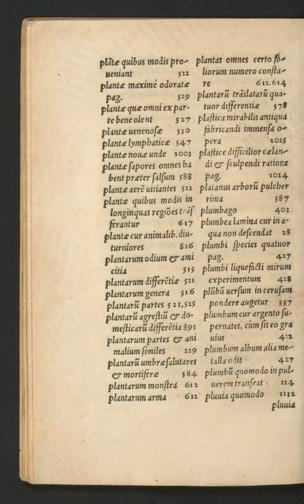 plãtæ quibus modis pro-
ueniant 522
plantæ maximè odoratæ
pag. 529
plantæ quæ omni ex par-
te bene olent 527
plantæ uenenosæ 530
plantæ lymphaticæ 547
plantæ nouæ unde 1003
plantæ sapores omnes ha
bent præter salsum 588
plantæ aerẽ uitiantes 522
plantæ quibus modis in
longinquas regiões trãs
ferantur 637
plantæ cur animalib. diu-
turniores 826
plantarum odium & ami
citia 515
plantarum differẽtiæ 521
plantarum genera 516
plantarũ partes 523, 525
plantarũ agrestiũ & do-
mesticarũ differẽtia 895
plantarum partes & ani
malium similes 229
plantarũ umbræ salutares
& mortiferæ 584
plantarum monstra 612
plantarum arma 612
plantas omnes certo fo-
liorum numero consta-
re 612. 614
plantarũ trãslatarũ qua-
tuor differentiæ 578
plastica mirabilis antiqua
fabricandi immensa o-
pera 1025
plastice difficilior cælan-
di & sculpendi ratione
pag. 1024
platanus arborũ pulcher
rima 587
plumbago 403
plumbea lamina cur in a-
qua non descendat 28
plumbi species quatuor
pag. 427
plumbi liquefacti mirum
experimentum 428
plũbũ uersum in cerusam
pondere augetur 357
plumbum cur argento su-
pernatet, cùm sit eo gra
uius 412
plumbum album alia me-
talla odit 427
plumbũ quomodo in pul-
uerem transeat 124
pluuia quomodo 1232
pluuia